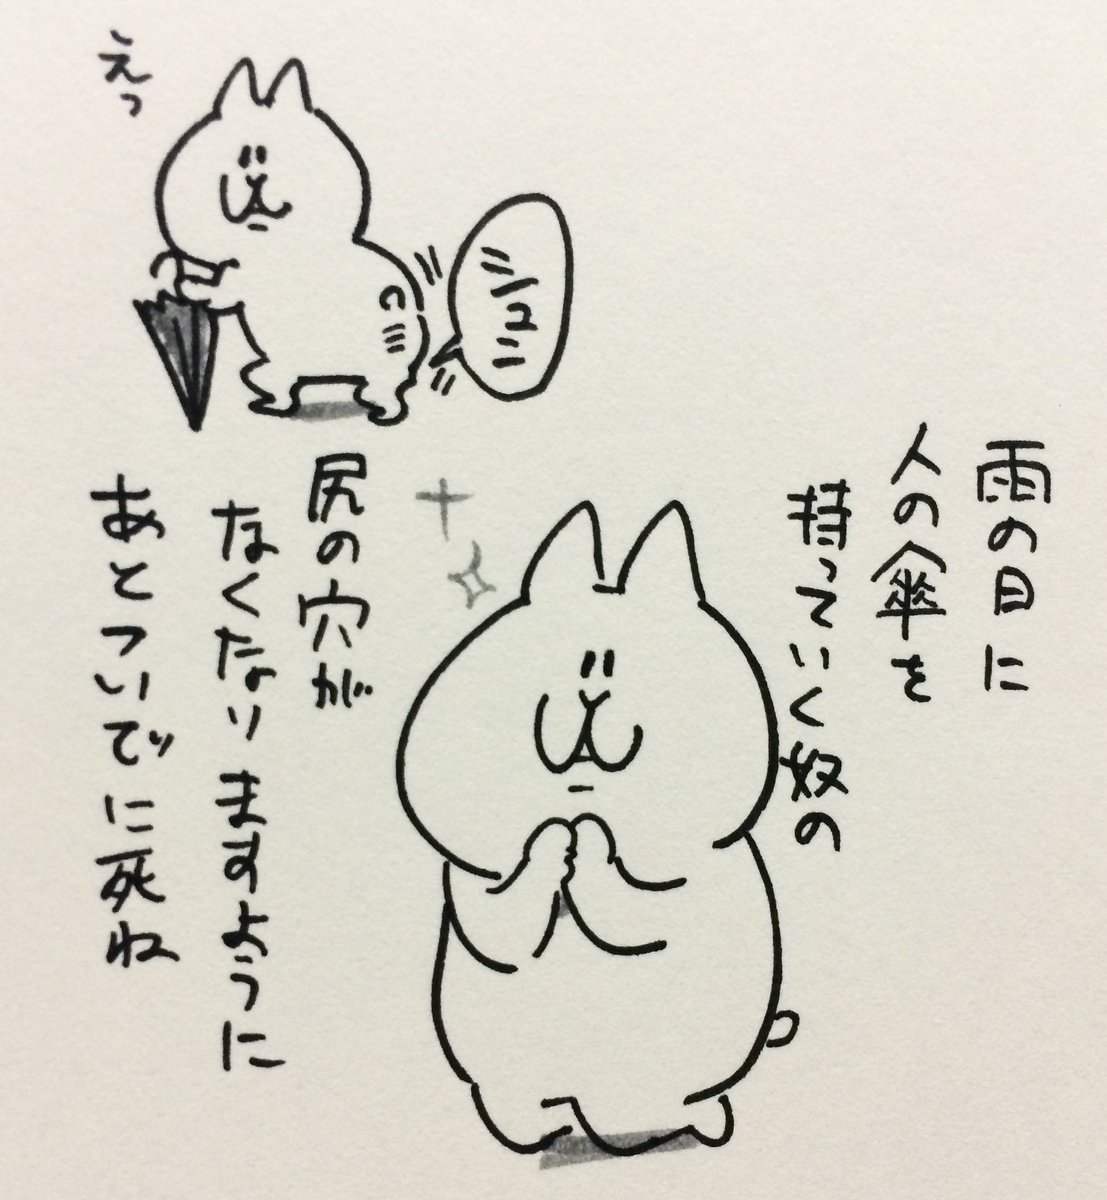 雨の日に
人の傘を
持っていく奴の
尻の穴が
なくなりますように
あとついでに死ね
えっ
シュン